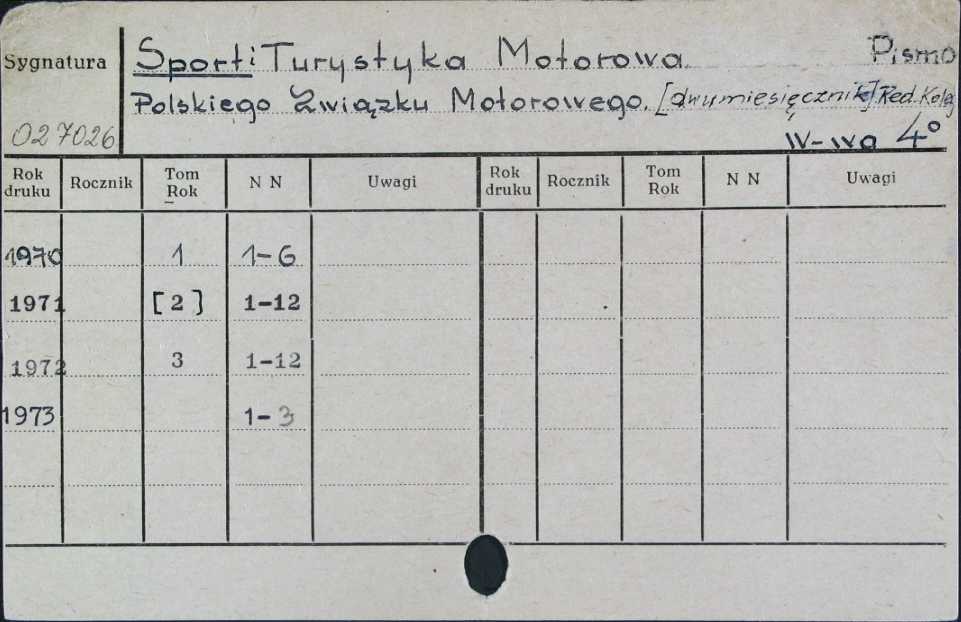 Sygnatura
Sport i Turystyka Motorowa. Pismo
Polskiego Związku Motorowego. [dwumiesięcznik] Red. Koleg
027026
W-wa 4°
Rok druku Rocznik Tom Rok N N Uwagi Rok druku Rocznik Tom Rok N N Uwagi
1970 1 1-6
1971 [2] 1-12
1972 3 1-12
1973 1-3